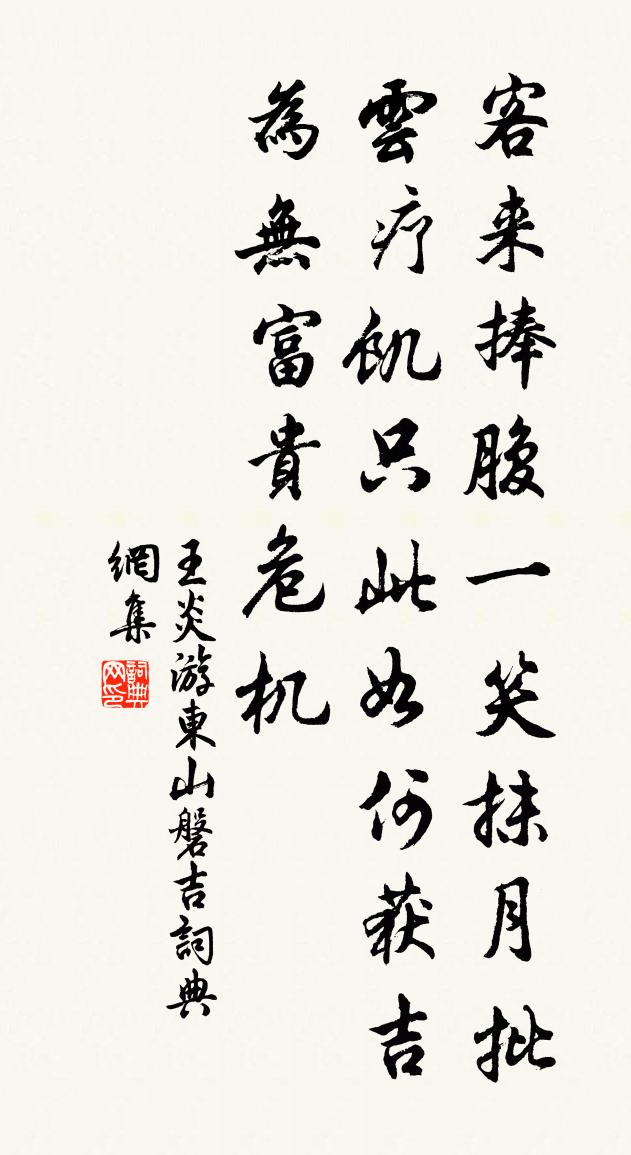 客来捧腹一笑抹月批
雲疗飢只此如何获吉
為無富貴危机
王炎游東山磐吉詞典
網集
詞典網印